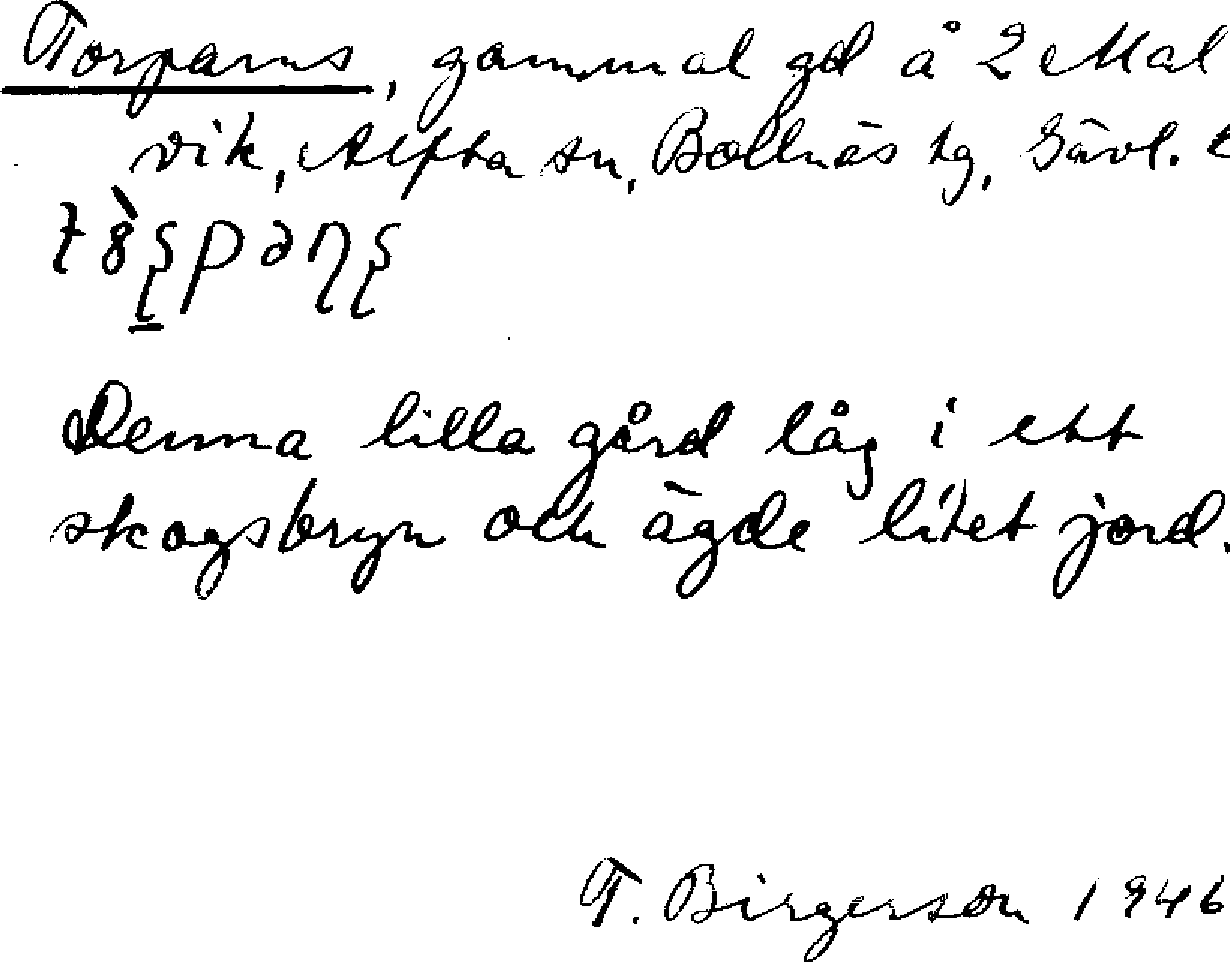 Torparns, gammal gd å 2 Mal
vik, Alfta sn, Bollnäs tg, Gävl.
Denna lilla gård låg i ett
skogsbryn och ägde litet jord.
T. Birgerson 1946